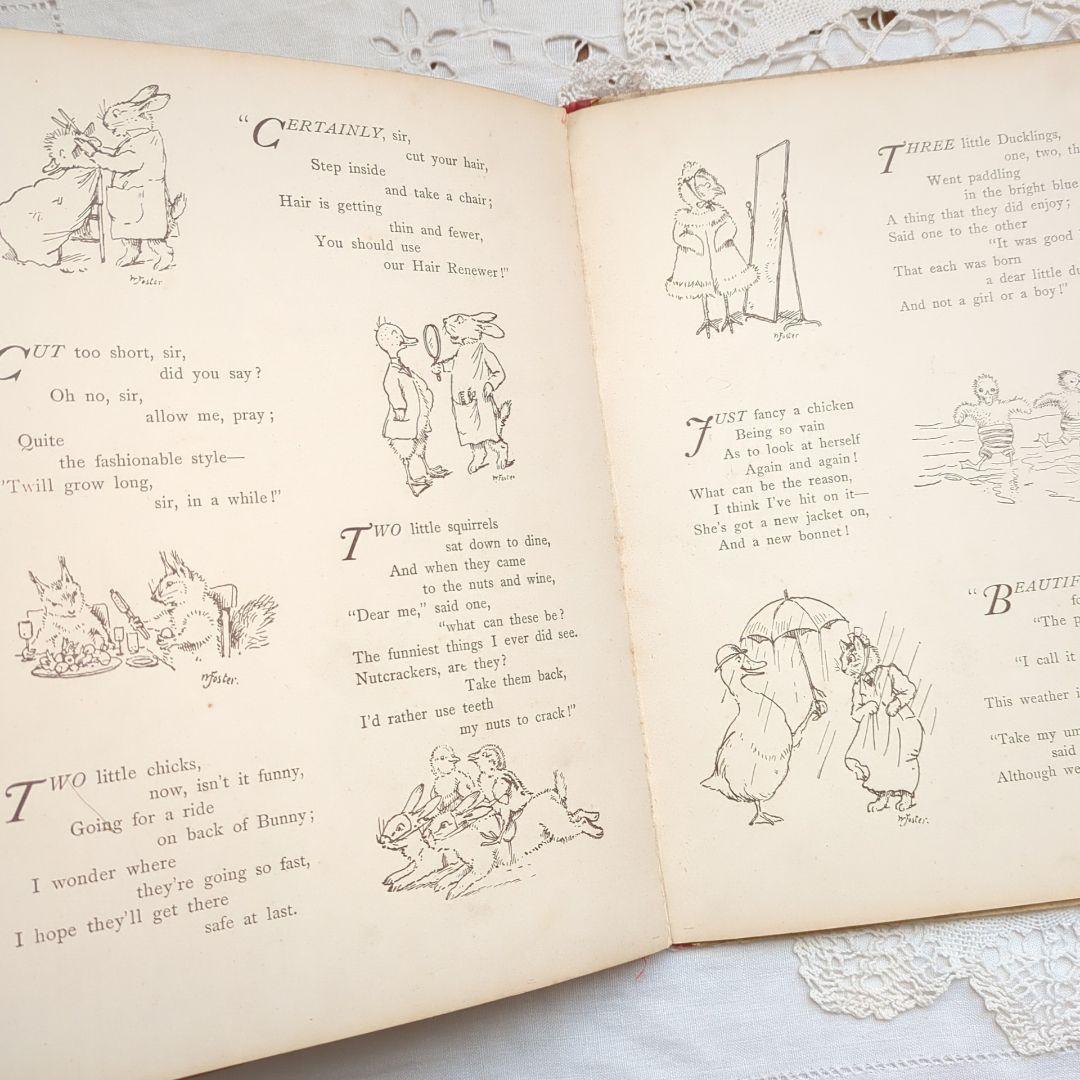 "CERTAINLY, sir,
cut your hair,
Step inside
and take a chair;
Hair is getting
thin and fewer,
You should use
our Hair Renewer!"
W Foster
CUT too short, sir,
did you say?
Oh no, sir,
allow me, pray;
Quite
the fashionable style—
'Twill grow long,
sir, in a while!"
W Foster
TWO little squirrels
sat down to dine,
And when they came
to the nuts and wine,
"Dear me," said one,
"what can these be?
The funniest things I ever did see.
Nutcrackers, are they?
Take them back,
I'd rather use teeth
my nuts to crack!"
W Foster.
TWO little chicks,
now, isn't it funny,
Going for a ride
on back of Bunny;
I wonder where
they're going so fast,
I hope they'll get there
safe at last.
THREE little Ducklings,
one, two,
Went paddling
in the bright blue
A thing that they did enjoy;
Said one to the other
"It was good
That each was born
a dear little
And not a girl or a boy!"
W Foster
JUST fancy a chicken
Being so vain
As to look at herself
Again and again!
What can be the reason,
I think I've hit on it—
She's got a new jacket on,
And a new bonnet!
"
"The
"I call it
This weather
"Take my
said
Although
W Foster.